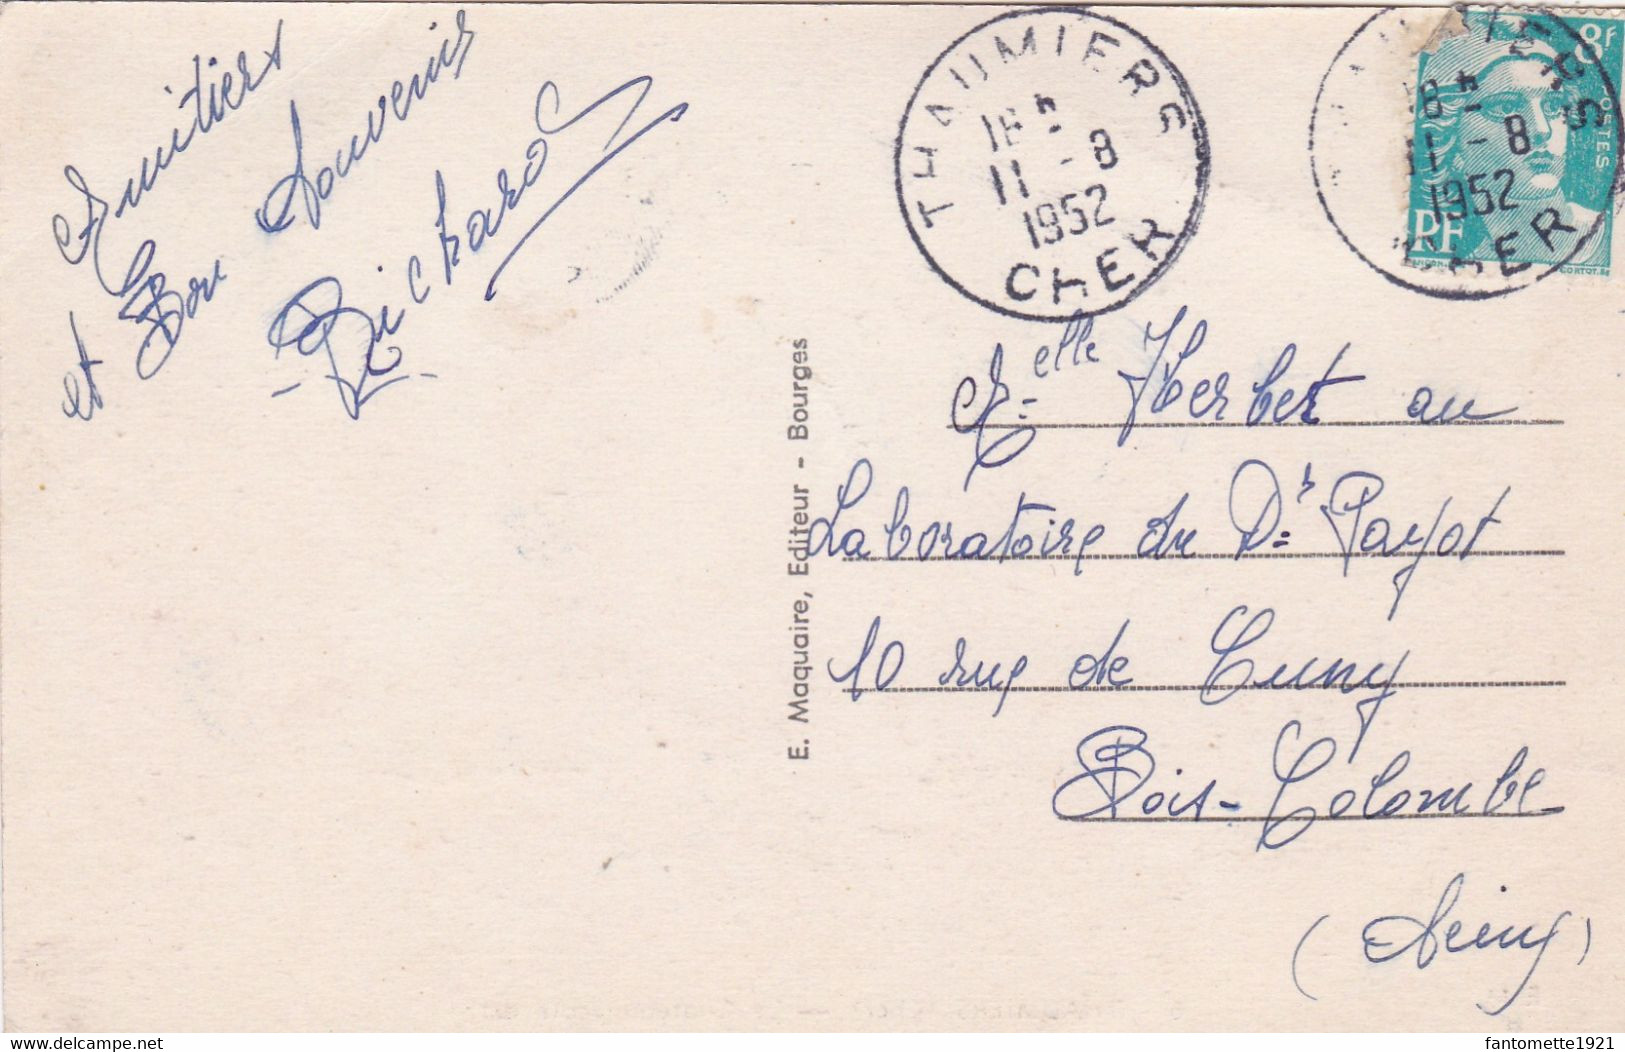 Amitiés
et Bon Souvenir
Richard
THAUMIERS
18H
11 - 8
1952
CHER
THAUMIERS
18H
11 - 8
1952
CHER
8F
POSTES
RF
CORTOT. Sc
E. Maquaire, Editeur - Bourges
Melle Herbet au
Laboratoire du Dr Payot
10 rue de Cuny
Bois-Colombe
(Seine)
www.delcampe.net
fantomette1921